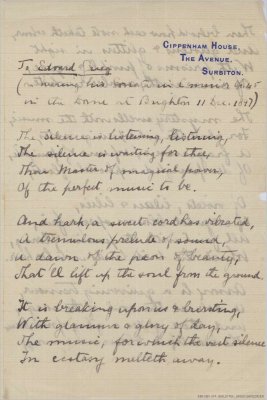 CIPPENHAM HOUSE,
THE AVENUE,
SURBITON.
To Edvard Grieg
(on hearing his sonata in C minor Op. 45
in the Dome at Brighton 11 Dec. 1897)
The silence is listening, listening,
The silence is waiting for thee,
Thou Master of magical power,
Of the perfect music to be.
And hark, a sweet cord has vibrated,
A tremulous prelude of sound,
A dawn of the paean of beauty,
That'll lift up the soul from the ground.
It is breaking upon us & bursting,
With glamour & glory of day,
The music, for which the vast silence
In ecstasy melteth away.